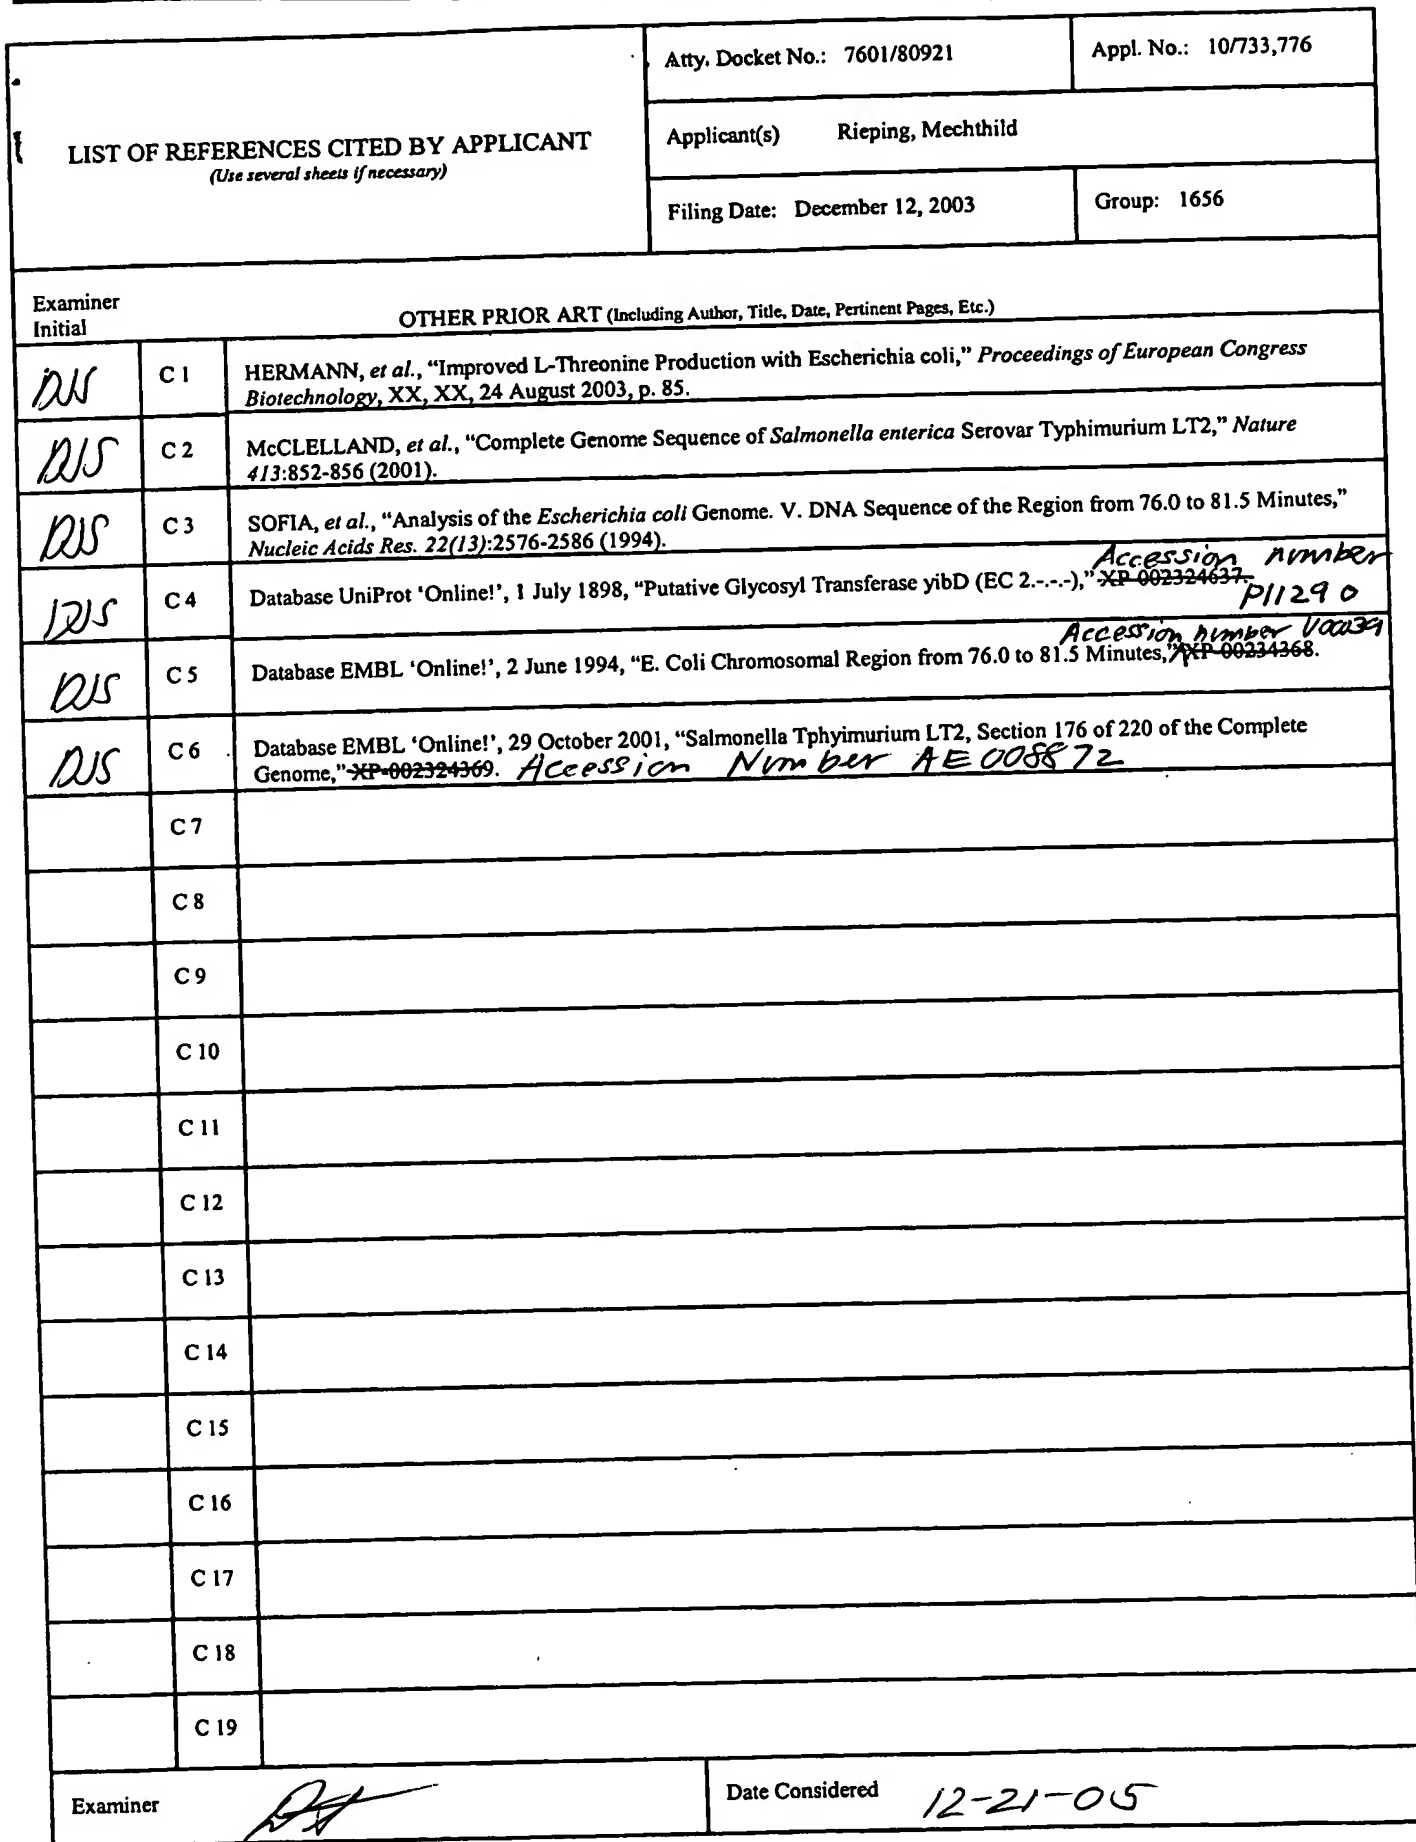 Atty. Docket No.: 7601/80921
Appl. No.: 10/733,776
LIST OF REFERENCES CITED BY APPLICANT
(Use several sheets if necessary)
Applicant(s) Rieping, Mechthild
Filing Date: December 12, 2003
Group: 1656
Examiner
Initial
OTHER PRIOR ART (Including Author, Title, Date, Pertinent Pages, Etc.)
DJS
C 1
HERMANN, et al., “Improved L-Threonine Production with Escherichia coli,” Proceedings of European Congress
Biotechnology, XX, XX, 24 August 2003, p. 85.
DJS
C 2
McCLELLAND, et al., “Complete Genome Sequence of Salmonella enterica Serovar Typhimurium LT2,” Nature
413:852-856 (2001).
DJS
C 3
SOFIA, et al., “Analysis of the Escherichia coli Genome. V. DNA Sequence of the Region from 76.0 to 81.5 Minutes,”
Nucleic Acids Res. 22(13):2576-2586 (1994).
Accession number
DJS
C 4
Database UniProt ‘Online!’, 1 July 1898, “Putative Glycosyl Transferase yibD (EC 2.-.-.-),” XP-002324637.
P11290
Accession number U00039
DJS
C 5
Database EMBL ‘Online!’, 2 June 1994, “E. Coli Chromosomal Region from 76.0 to 81.5 Minutes,” XP-00234368.
DJS
C 6
Database EMBL ‘Online!’, 29 October 2001, “Salmonella Tphyimurium LT2, Section 176 of 220 of the Complete
Genome,” XP-002324369. Accession Number AE008872
C 7
C 8
C 9
C 10
C 11
C 12
C 13
C 14
C 15
C 16
C 17
C 18
C 19
Examiner
Date Considered 12-21-05